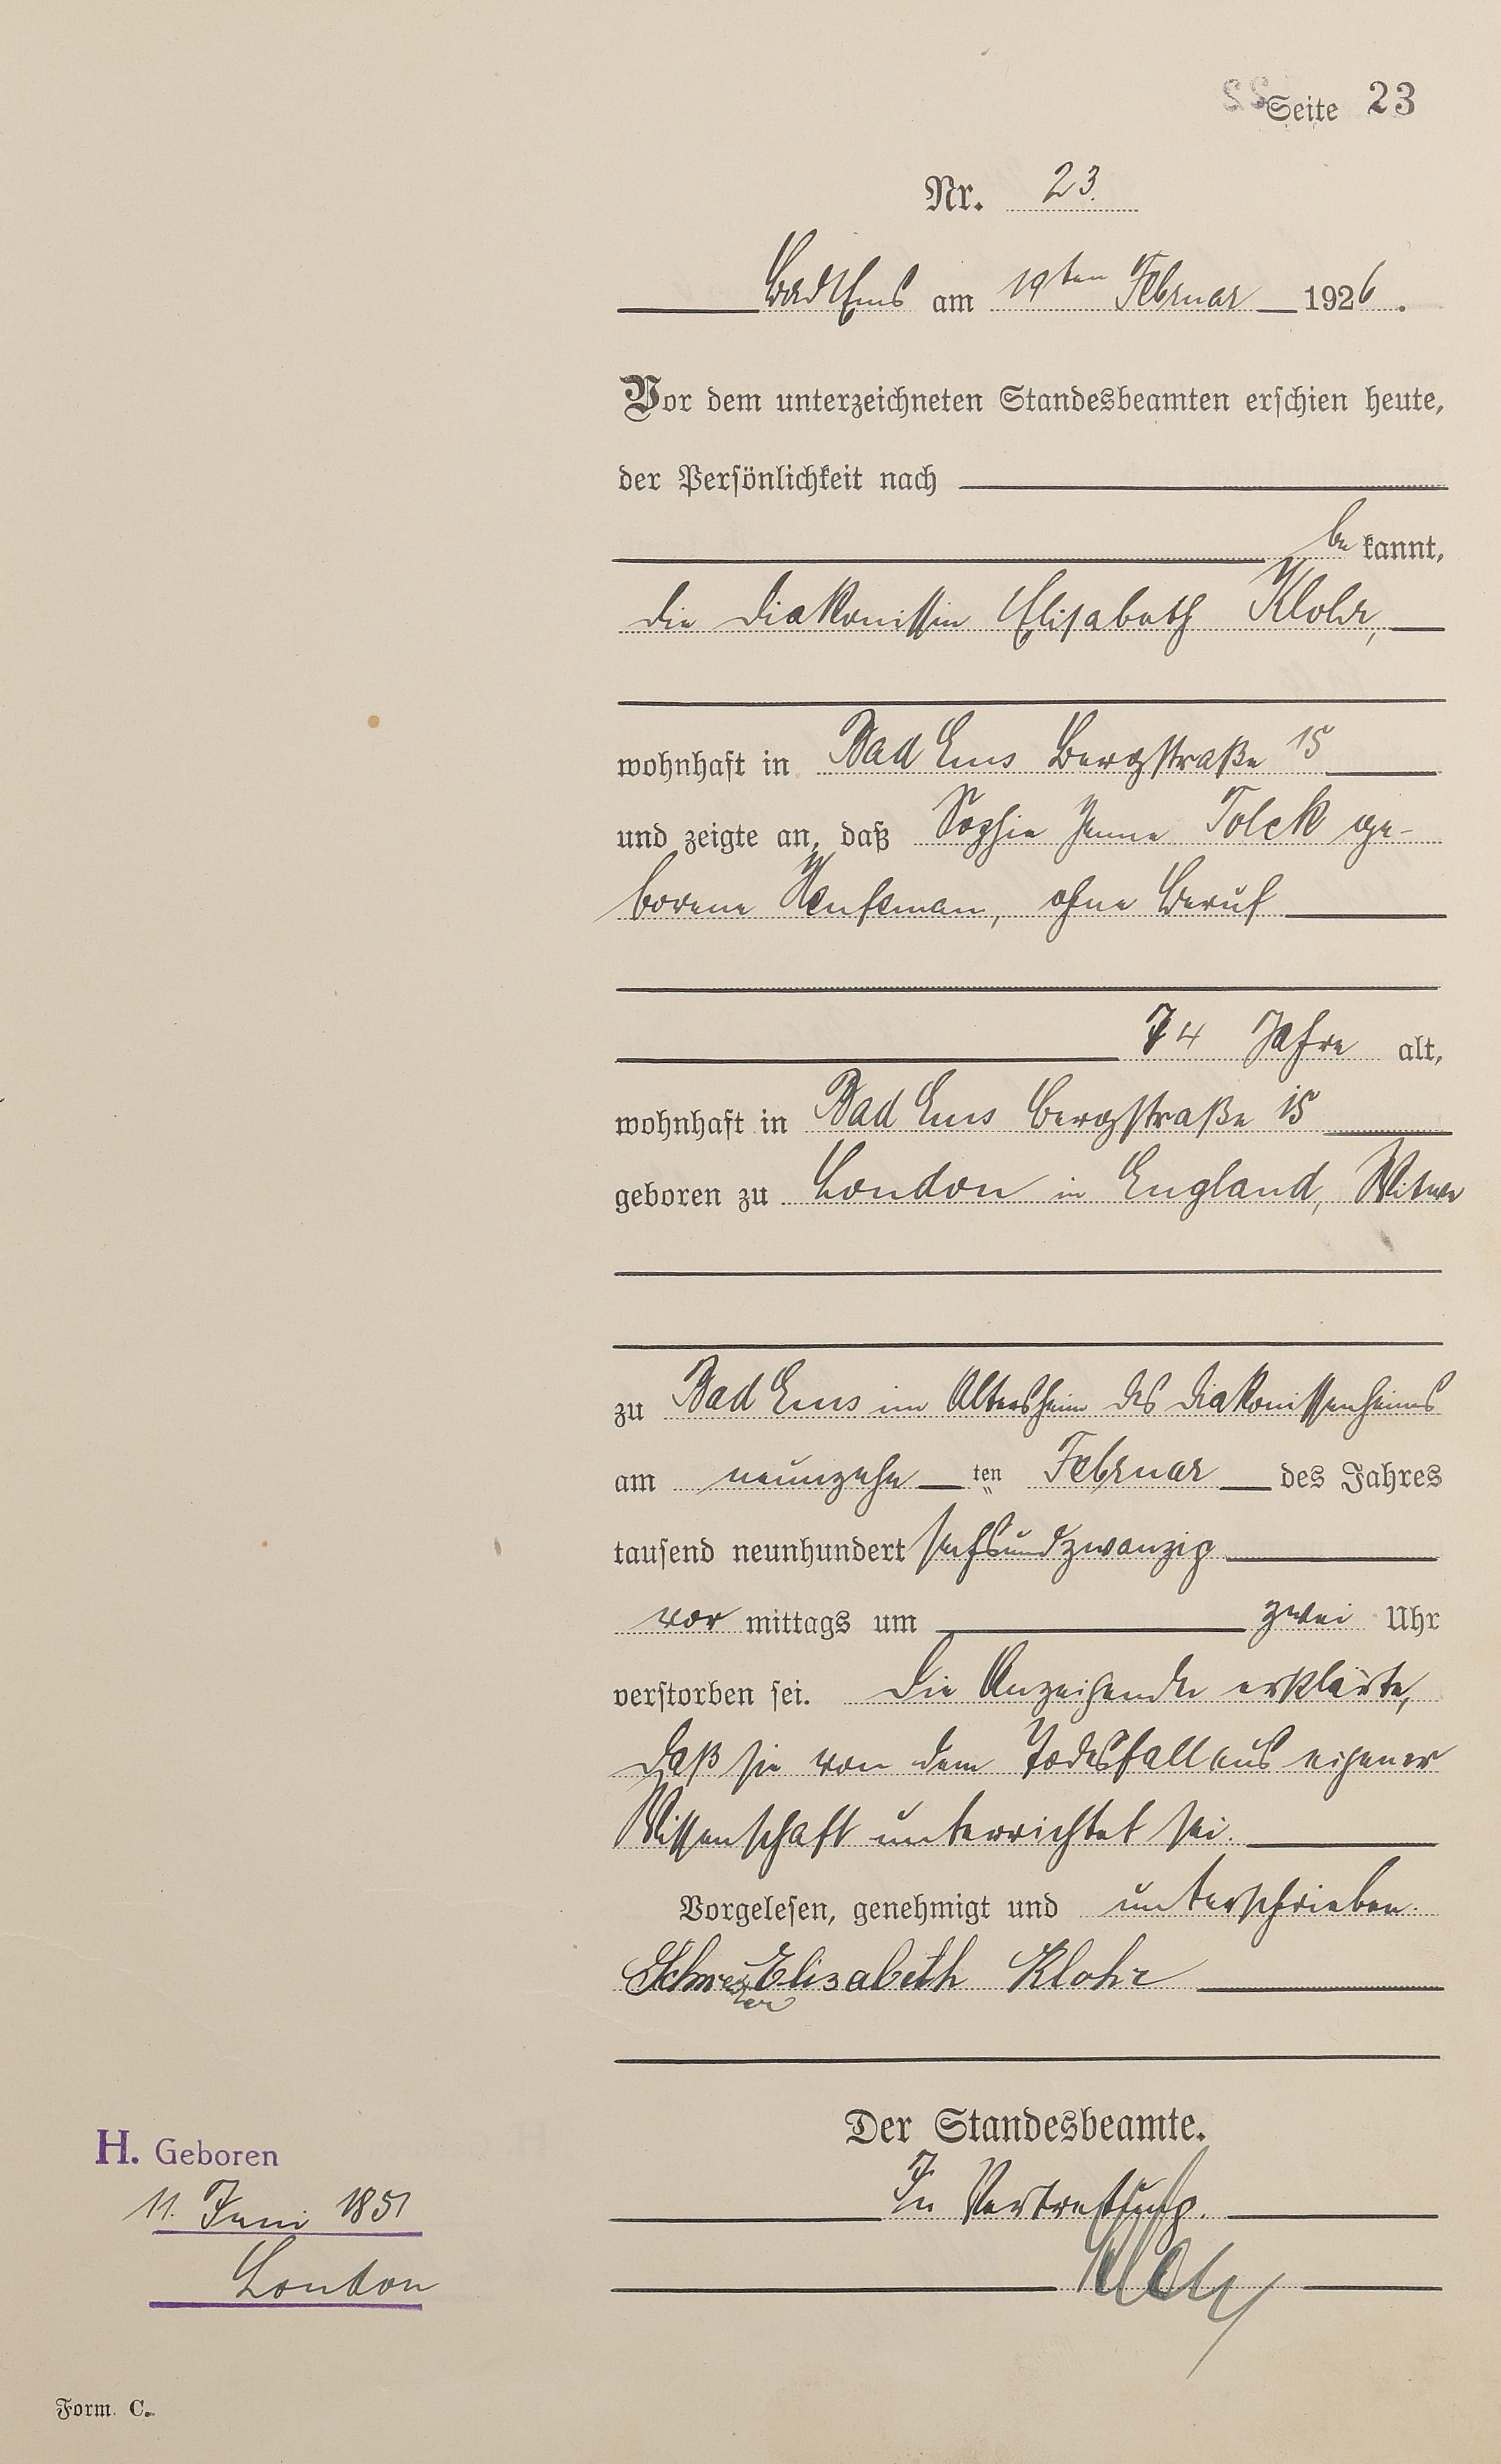 Seite 23
Nr. 23.
Bad Ems am 19ten Februar 1926.
Vor dem unterzeichneten Standesbeamten erschien heute,
der Persönlichkeit nach
be kannt,
die Diakonissin Elisabeth Klohr,
wohnhaft in Bad Ems Bergstraße 15
und zeigte an, daß Sophie Tolck ge-
borene ohne Beruf
74 Jahre alt,
wohnhaft in Bad Ems Bergstraße 15
geboren zu London in England, Witwe
zu Bad Ems im Altersheim des Diakonissenheims
am neunzehn ten Februar des Jahres
tausend neunhundert sechsundzwanzig
vor mittags um zwei Uhr
verstorben sei. Die Anzeigende erklärte,
daß sie von dem Todesfall aus eigener
Wissenschaft unterrichtet sei.
Vorgelesen, genehmigt und unterschrieben.
Schwester Elisabeth Klohr
Der Standesbeamte.
In Vertretung.
H. Geboren
11. Juni 1851
London
Form. C.